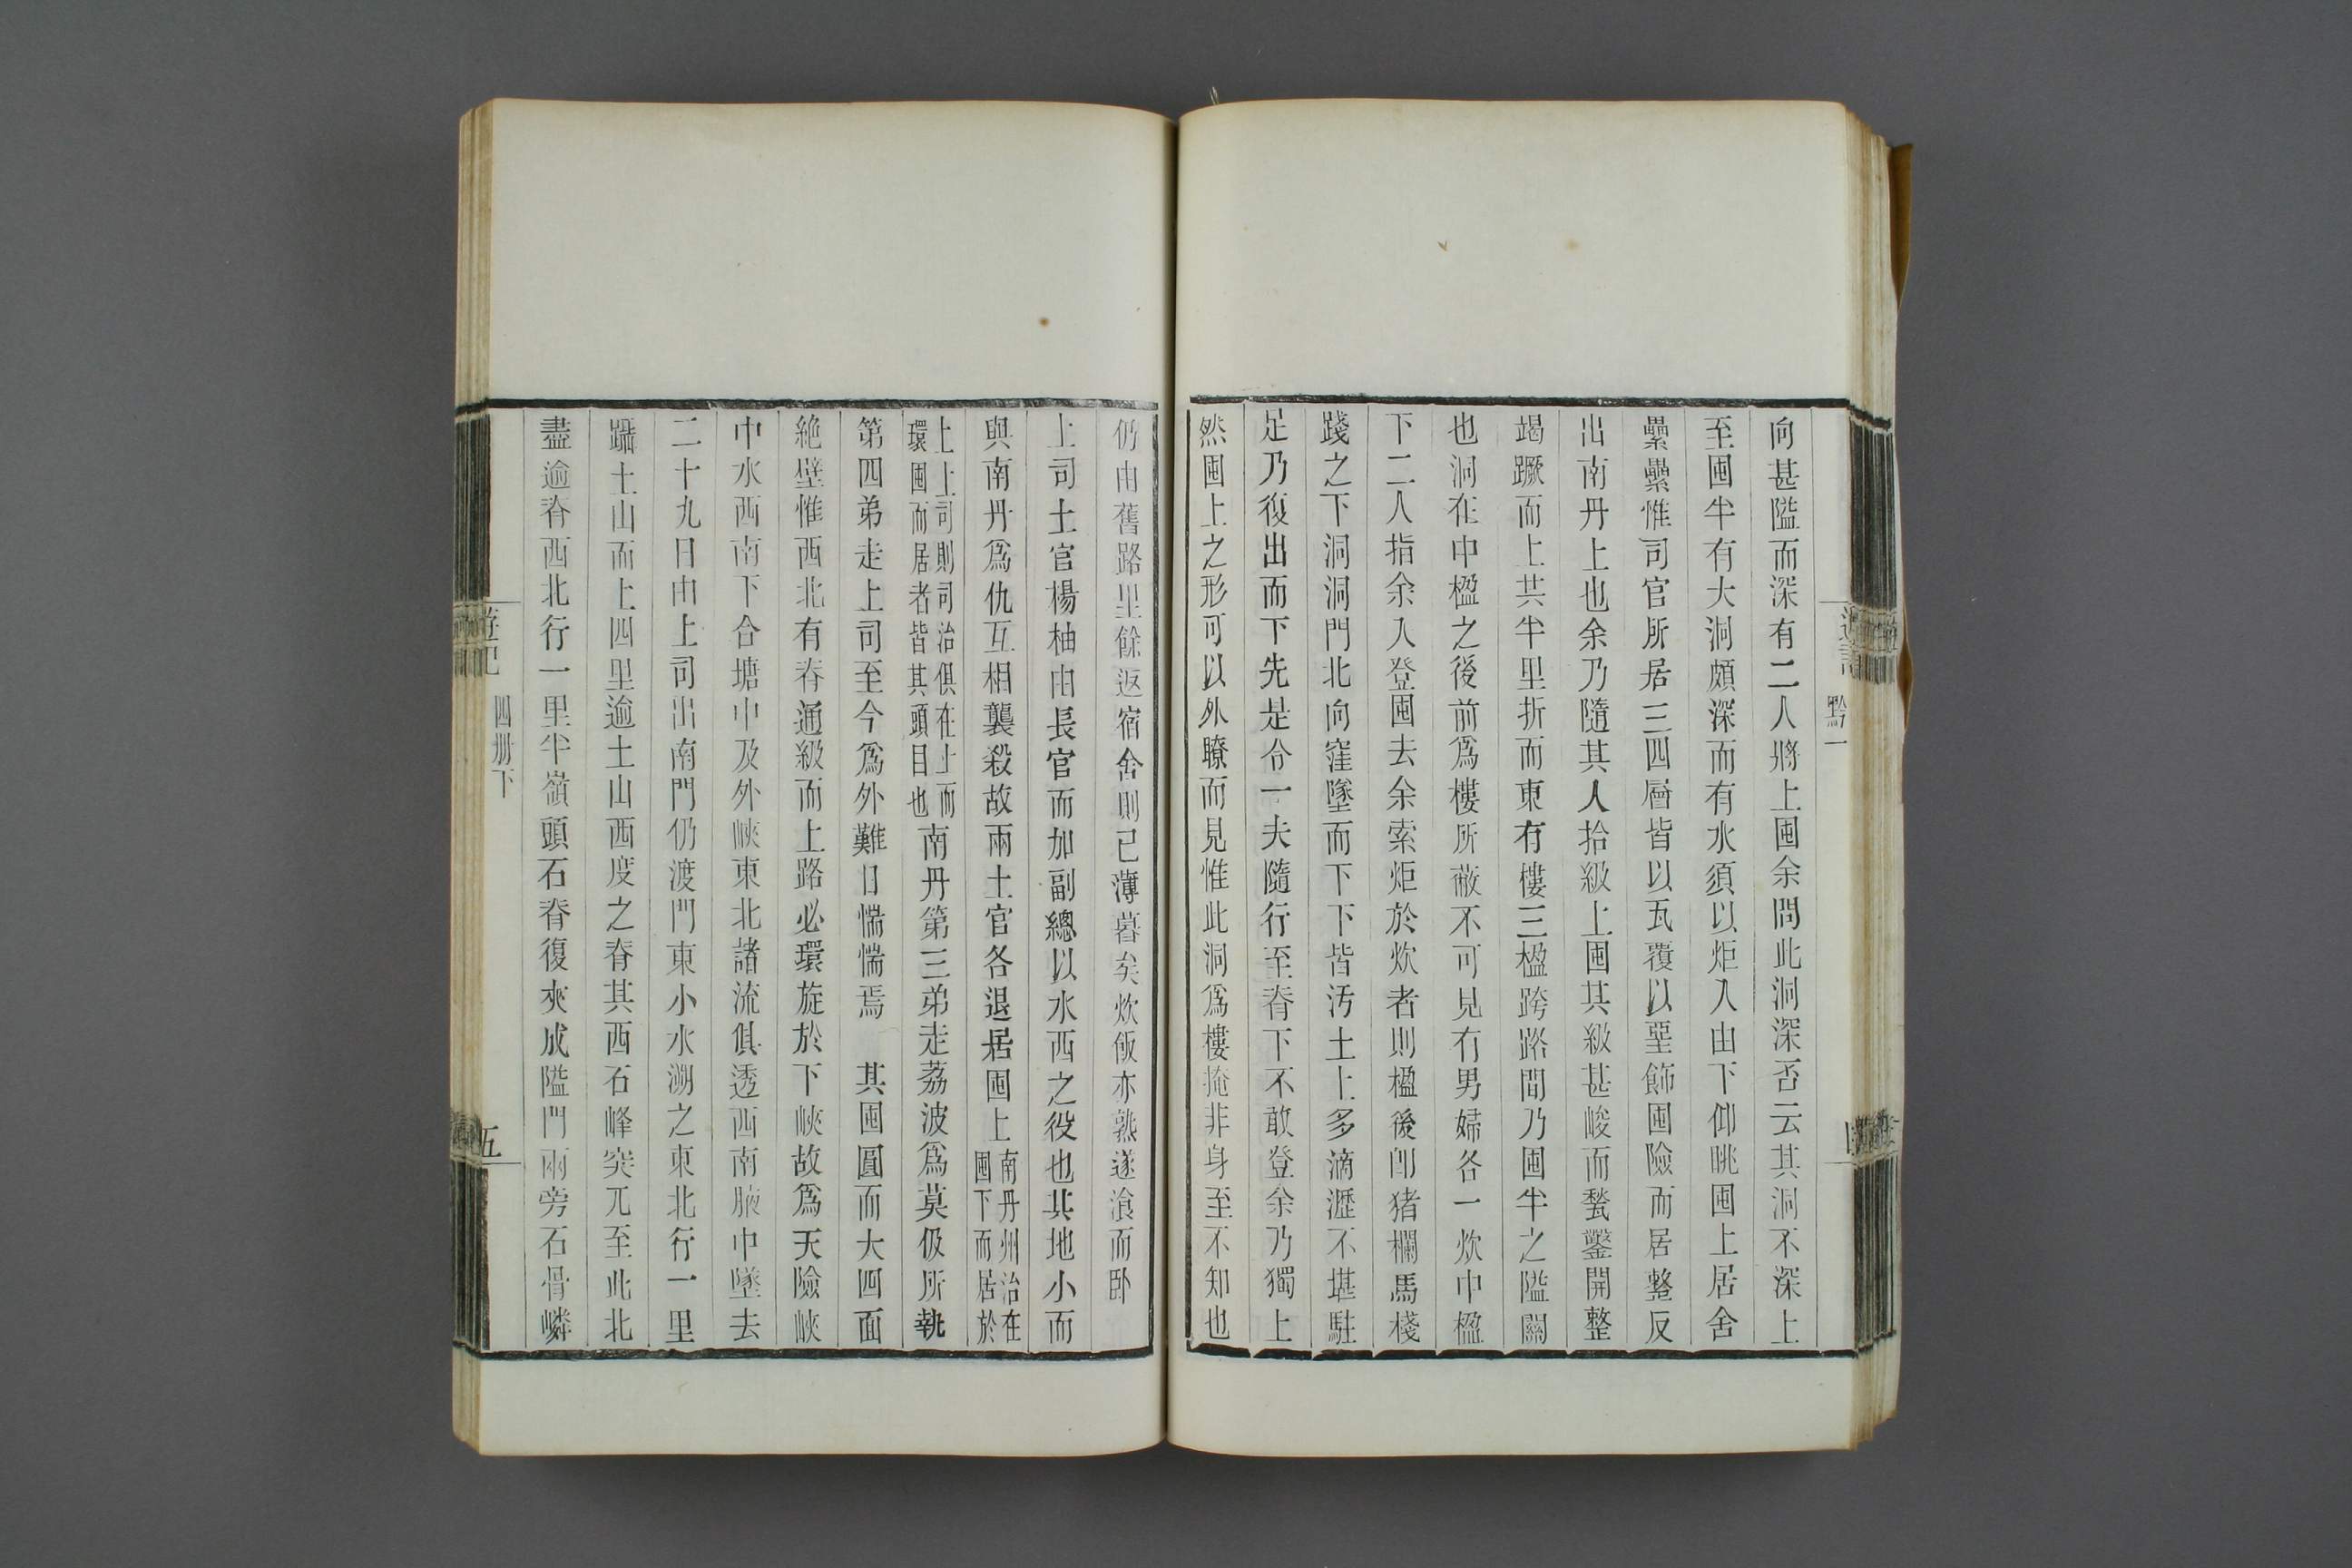 向甚隘而深有二人將上囤余問此洞深否云其洞不深上
至囤半有大洞頗深而有水須以炬入由下仰眺囤上居舍
纍纍惟司官所居三四層皆以瓦覆以堊飾囤險而居整反
出南丹上也余乃隨其人拾級上囤其級甚峻而甃鑿開整
竭蹶而上共半里折而東有樓三楹跨路間乃囤半之隘關
也洞在中楹之後前爲樓所蔽不可見有男婦各一炊中楹
下二人指余入登囤去余索炬於炊者則楹後卽猪欄馬棧
踐之下洞洞門北向窪墜而下下皆汚土上多滴瀝不堪駐
足乃復出而下先是令一夫隨行至脊下不敢登余乃獨上
然囤上之形可以外瞭而見惟此洞爲樓掩非身至不知也
仍由舊路里餘返宿舍則已薄暮矣炊飯亦熟遂飡而卧
上司土官楊柚由長官而加副總以水西之役也其地小而
與南丹爲仇互相襲殺故兩土官各退居囤上南丹州治在囤下而居於
上上司則司治俱在上而環囤而居者皆其頭目也南丹第三弟走荔波爲莫伋所執
第四弟走上司至今爲外難日惴惴焉　其囤圓而大四面
絶壁惟西北有脊通級而上路必環旋於下峽故爲天險峽
中水西南下合塘中及外峽東北諸流俱透西南腋中墜去
二十九日由上司出南門仍渡門東小水溯之東北行一里
躡土山而上四里逾土山西度之脊其西石峰突兀至此北
盡逾脊西北行一里半嶺頭石脊復夾成隘門兩旁石骨嶙
遊記
四册下
五
黔一